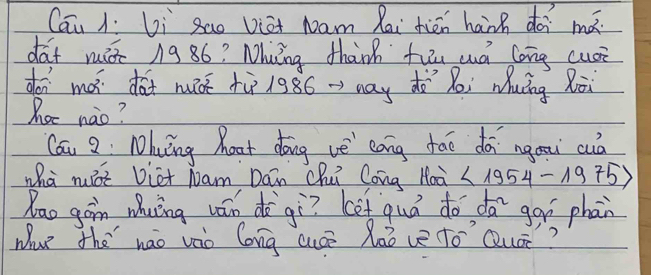 Câu 1: Vì sao Việt Nam lại tiến hành đổi mới
đất nước 1986? Những thành tựu của Công cuộc
đổi mới đất nước từ 1986 → nay để lại những bài
học nào?
Câu 2: Những hoạt động về công tác đối ngoại của
nhà nước Việt Nam Dân Chủ Công Hoà < 1954 - 1975>
bao gồm những vấn đề gì? Kết quả đó đã góp phần
như thế nào vào Công cuộc bảo vệ Tổ Quốc?